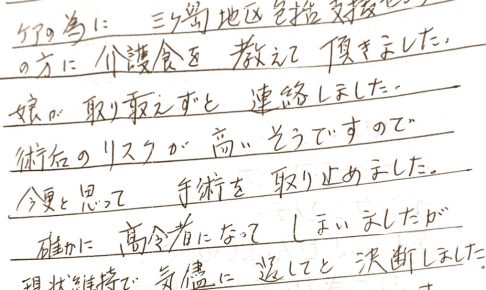 ケアの為に 三ヶ島地区包括支援セ
の方に 介護食を 教えて 頂きました。
娘が 取り敢えずと 連絡しました。
術后のリスクが 高いそうですので
今更と思って 手術を 取り止めました。
確かに 高令者になって しまいましたが
現状維持で 気儘に 過してと 決断しました